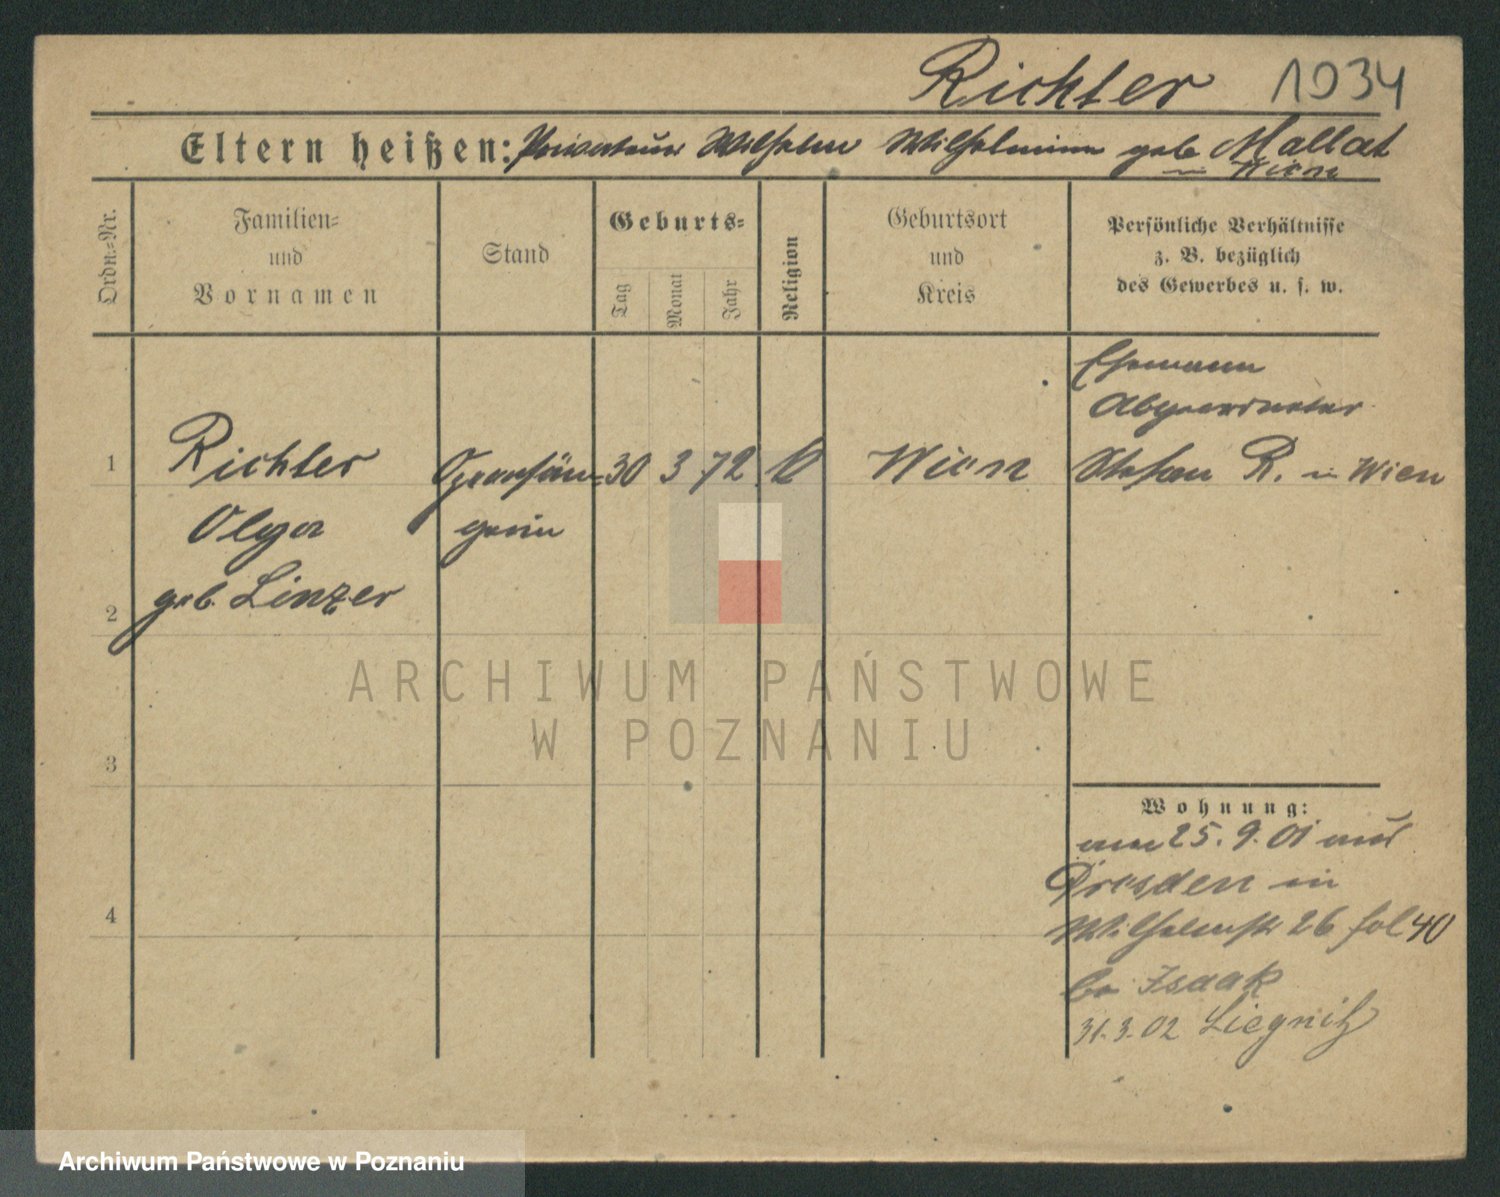 Richter 1034
Eltern heißen: Privateur Wilhelm Wilhelmine geb Mallat
in Wien
Ordn.-Nr.
Familien-
und
Vornamen
Stand
Geburts-
Tag
Monat
Jahr
Religion
Geburtsort
und
Kreis
Persönliche Verhältnisse
z. B. bezüglich
des Gewerbes u. s. w.
Ehemann
Abgeordneter
1 Richter Opernsän- 30 3 72 k Wien Stefan R. in Wien
Olga gerin
2 geb. Linzer
3
4
Wohnung:
am 25. 9. 01 aus
Dresden in
Wilhelmstr 26 fol 40
bei Isaak
31. 3. 02 Liegnitz
ARCHIWUM PAŃSTWOWE
W POZNANIU
Archiwum Państwowe w Poznaniu